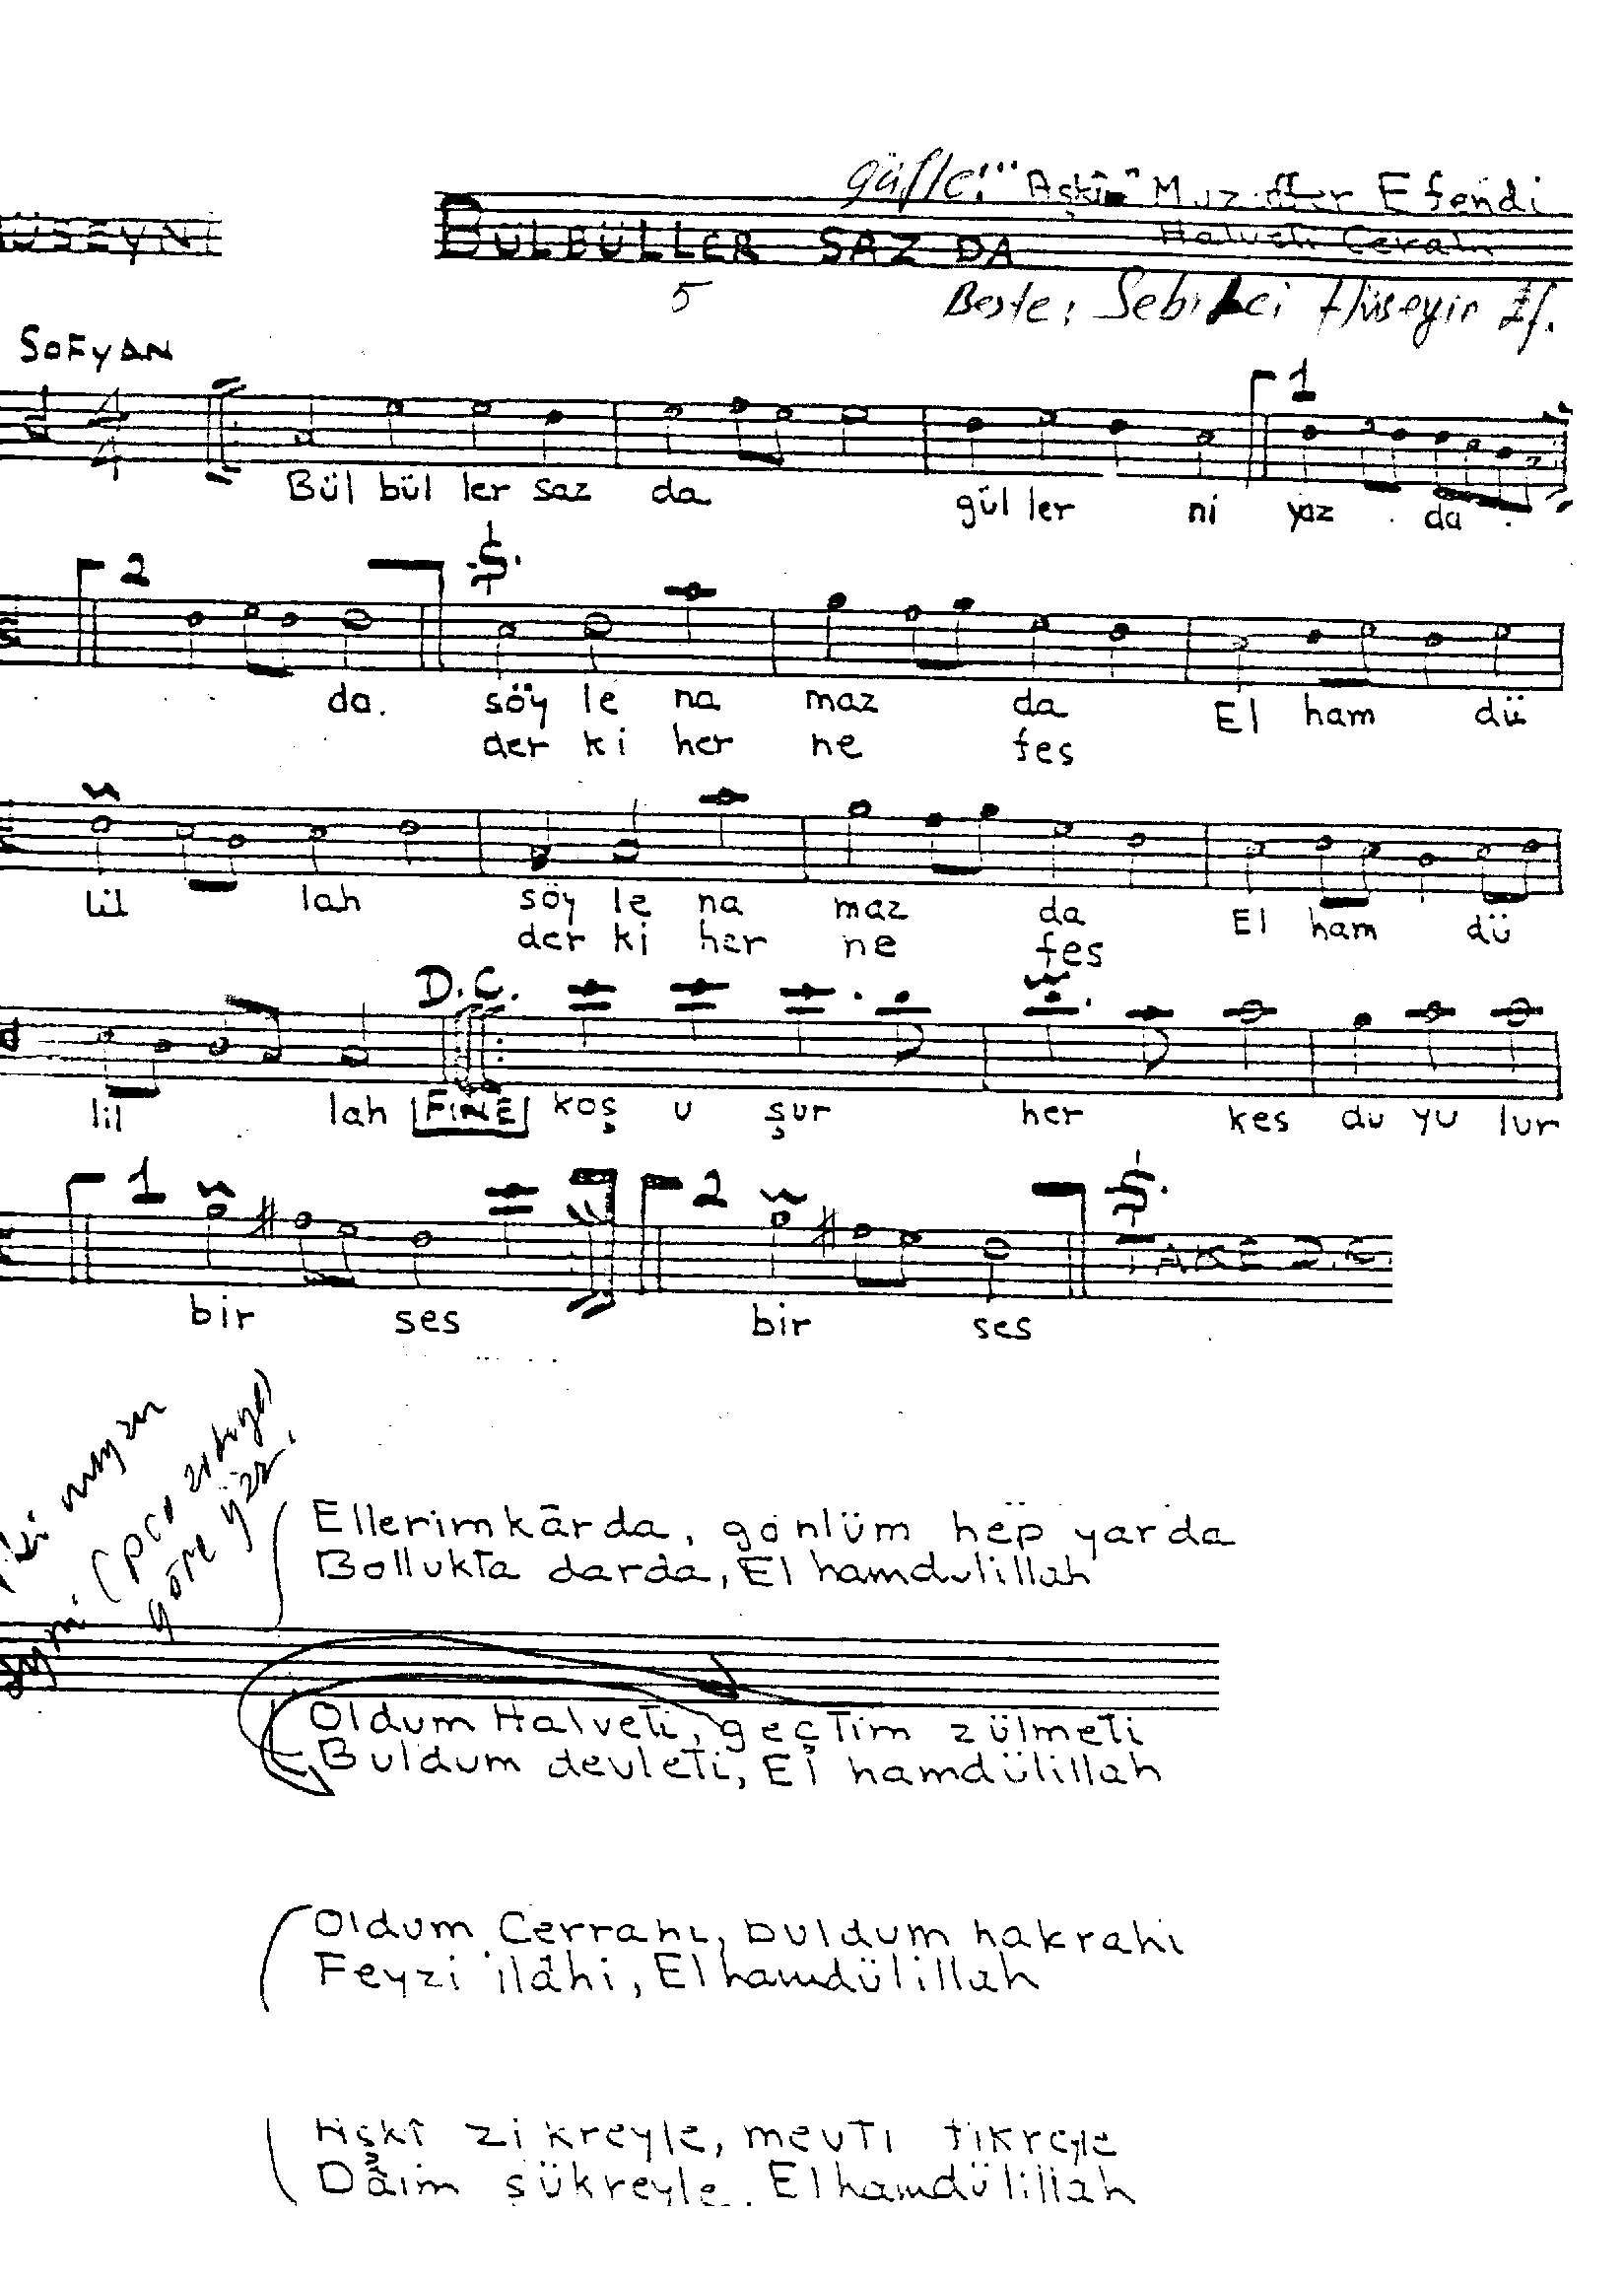 güfte: "Aşkî" Muzaffer Efendi
HÜSEYNİ BÜLBÜLLER SAZ DA Halveti Cerahi
5 Beste: Sebilci Hüseyin Ef.
SOFYAN
1
Bül bül ler saz da gül ler ni yaz . da .
2
da. söy le na maz da El ham dü
der ki her ne fes
lil lah söy le na maz da El ham dü
der ki her ne fes
D.C.
lil lah FİNE koş u şur her kes du yu lur
1 2
bir ses bir ses
göre yaz.
Ellerimkârda, gönlüm hep yarda
Bollukta darda, El hamdulillah
Oldum Halveti, geçtim zülmeti
Buldum devleti, El hamdülillah
Oldum Cerrahı, buldum hakrahı
Feyzi ilâhi, Elhamdülillah
Aşkî zikreyle, mevti fikreyle
Dâim şükreyle, Elhamdülillah